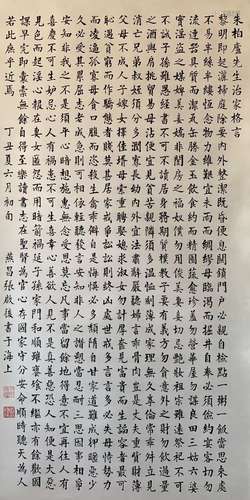 朱柏廬先生治家格言
黎明即起灑掃庭除要內外整潔既昏便息關鎖門戶必親自檢點一粥一飯當思來處
不易半絲半縷恆念物力維艱宜未雨而綢繆毋臨渴而掘井自奉必須儉約宴客切勿
流連器具質而潔瓦缶勝金玉飲食約而精園蔬愈珍饈勿營華屋勿謀良田三姑六婆
實淫盜之媒婢美妾嬌非閨房之福奴僕勿用俊美妻妾切忌艷妝祖宗雖遠祭祀不可
不誠子孫雖愚經書不可不讀居身務期質樸教子要有義方勿貪意外之財勿飲過量
之酒與肩挑貿易毋佔便宜見貧苦親鄰須多溫恤刻薄成家理無久享倫常乖舛立見
消亡兄弟叔姪須分多潤寡長幼內外宜法肅辭嚴聽婦言乖骨肉豈是丈夫重貲財薄
父母不成人子嫁女擇佳壻毋索重聘娶媳求淑女勿計厚奩見富貴而生諂容者最可
恥遇貧窮而作驕態者賤莫甚居家戒爭訟訟則終凶處世戒多言言多必失毋恃勢力
而凌逼孤寡毋貪口腹而恣殺生禽乖僻自是悔誤必多頹惰自甘家道難成狎暱惡少
久必受其累屈志老成急則可相依輕聽發言安知非人之譖愬當忍耐三思因事相爭
安知非我之不是須平心暗想施惠無念受恩莫忘凡事當留餘地得意不宜再往人有
喜慶不可生妒忌心人有禍患不可生喜幸心善欲人見不是真善惡恐人知便是大惡
見色而起淫心報在妻女匿怨而用暗箭禍延子孫家門和順雖饔飧不繼亦有餘歡國
課早完即囊橐無餘自得至樂讀書志在聖賢為官心存君國守分安命順時聽天為人
若此庶乎近焉
丁丑夏六月初旬
燕昌張啟後書于海上